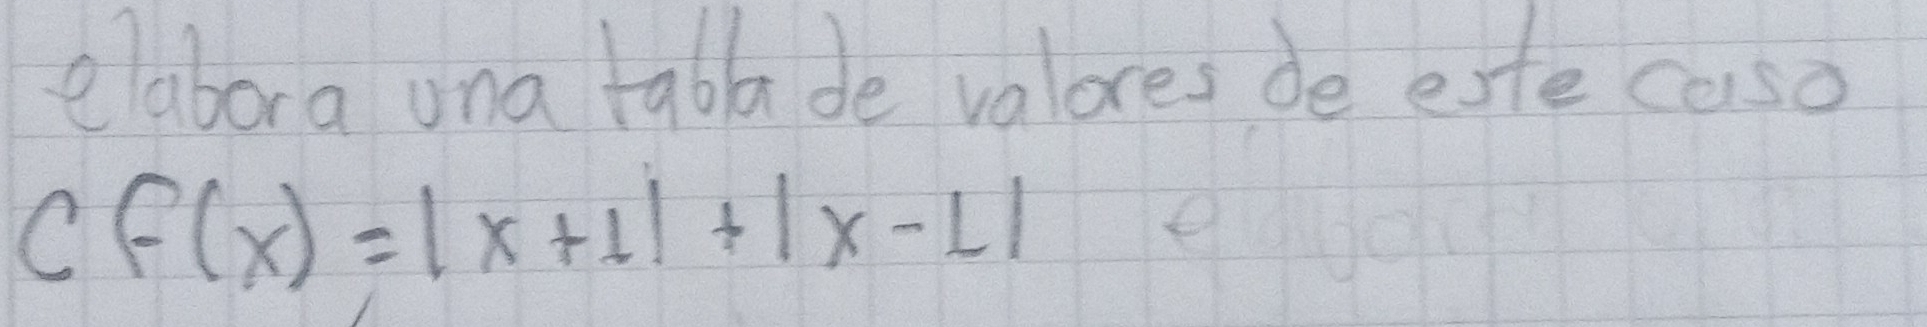 elabora una tabla de valores de este caso
C f(x) = |x+1| + |x-1|